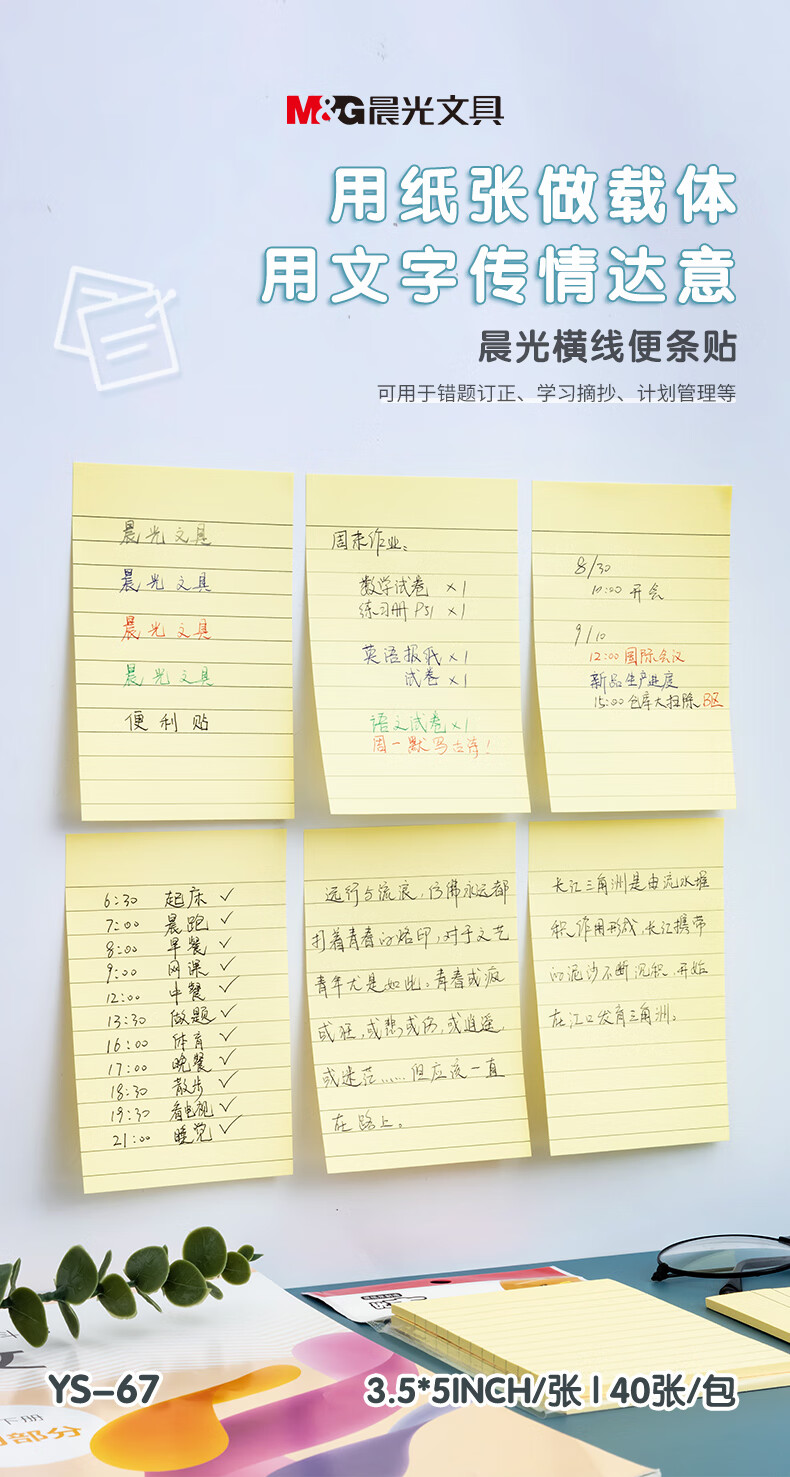 M&G晨光文具
用纸张做载体
用文字传情达意
晨光横线便条贴
可用于错题订正、学习摘抄、计划管理等
晨光文具
晨光文具
晨光文具
晨光文具
便利贴
周末作业。
数学试卷 ×1
练习册 P51 ×1
英语报纸 ×1
试卷 ×1
语文试卷 ×1
周一默写古诗!
8/30
10:00 开会
9/10
12:00 国际会议
新品生产进度
15:00 仓库大扫除 B区
6:30 起床 ✓
7:00 晨跑 ✓
8:00 早餐 ✓
9:00 网课 ✓
12:00 中餐 ✓
13:30 做题 ✓
16:00 体育 ✓
17:00 晚餐 ✓
18:30 散步 ✓
19:30 看电视 ✓
21:00 睡觉 ✓
远行与流浪,仿佛永远都
打着青春的烙印,对于文艺
青年尤是如此。青春或疯
或狂,或悲或伤,或逍遥,
或迷茫……但应该一直
在路上。
长江三角洲是由流水堆
积作用形成,长江携带
的泥沙不断沉积,开始
在江口发育三角洲。
YS-67
3.5*5INCH/张 | 40张/包
下册
部分